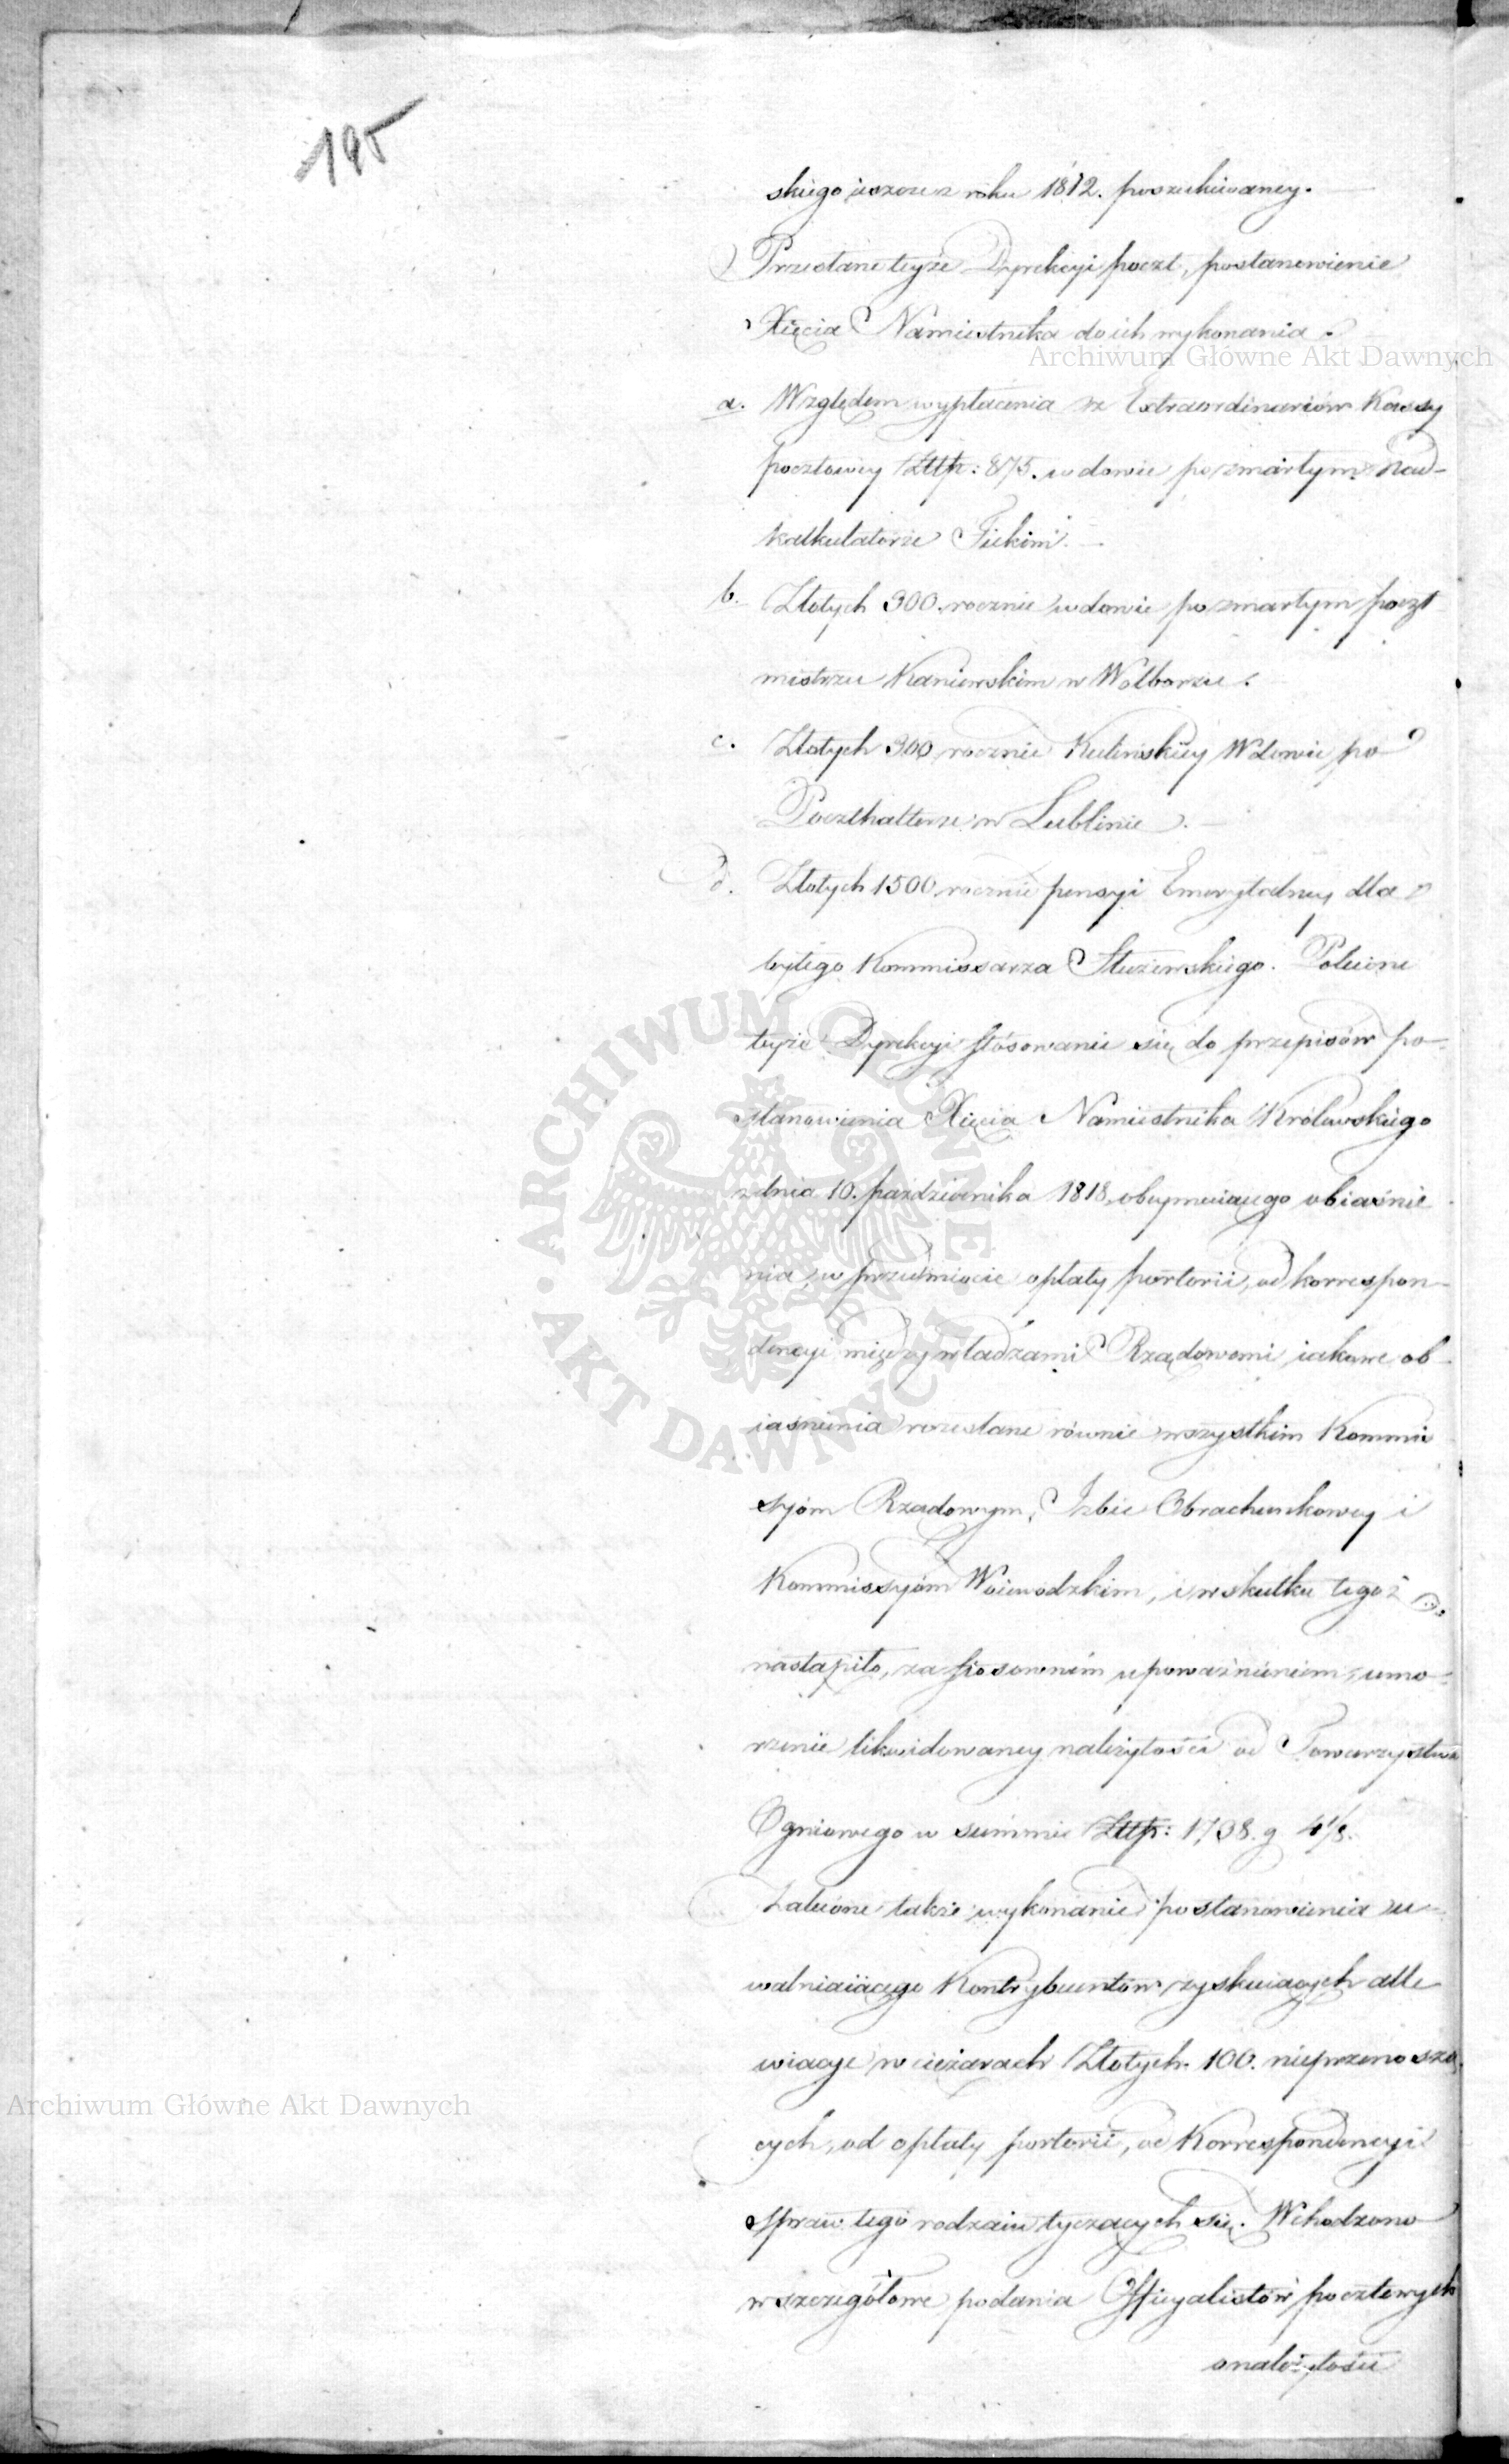 195
skiego ieszcze z roku 1812. poszukiwaney.
Przesłane teyże Dyrekcyi poczt, postanowienie
Xięcia Namiestnika do ich wykonania.
Archiwum Główne Akt Dawnych
a. Względem wypłacenia z Extraordinariów Kassy
pocztowey Złłp: 875. wdowie po zmarłym nad-
kalkulatorze
b. Złotych 300. rocznie wdowie po zmarłym poczt
mistrzu Kaniewskim w Wolborzu.
c. Złotych 300 rocznie Wdowie po
Poczthalterze w Lublinie.
d. Złotych 1500 rocznie pensyi Emerytalney dla
byłego Kommissarza Służewskiego. Polecone
teyże Dyrekcyi stósowanie się do przepisów po-
stanowienia Xięcia Namiestnika Królewskiego
z dnia 10. października 1818, obeymuiącego obiaśnie
nia, w przedmiocie opłaty portorii, od korrespon-
dencyi między władzami Rządowemi, iakowe ob-
iaśnienia rozesłane równie wszystkim Kommis
syjom Rządowym, Izbie Obrachunkowey i
Kommissyjom Woiewodzkim, i w skutku tegoż
nastąpiło, za stosownem upoważnieniem, umo-
rzenie likwidowaney należytości od Towarzystwa
Ogniowego w summie Złłp: 1738. g 4 1/8.
Zalecone także wykonanie postanowienia u-
walniaiącego Kontrybuentów zyskuiących alle
wiacye w ciężarach Złotych 100. nieprzenoszą
cych, od opłaty portorii, od Korrespondencyi
spraw tego rodzaiu tyczących się. Wchodzono
w szczegółowe podania Officyalistów pocztowych
o należytości
ARCHIWUM GŁÓWNE · AKT DAWNYCH ·
Archiwum Główne Akt Dawnych